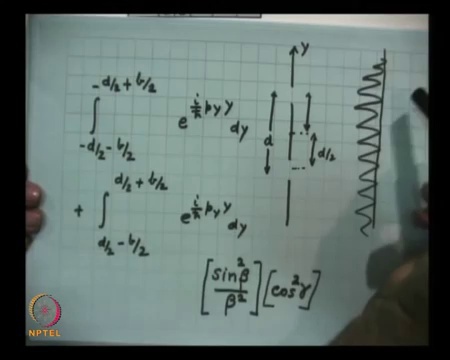 -d/2 + b/2
∫ e^{(i/ħ) p_y y} dy
-d/2 - b/2
d/2 + b/2
+ ∫ e^{(i/ħ) p_y y} dy
d/2 - b/2
y
d
d/2
[sin²β / β²] [cos²γ]
NPTEL